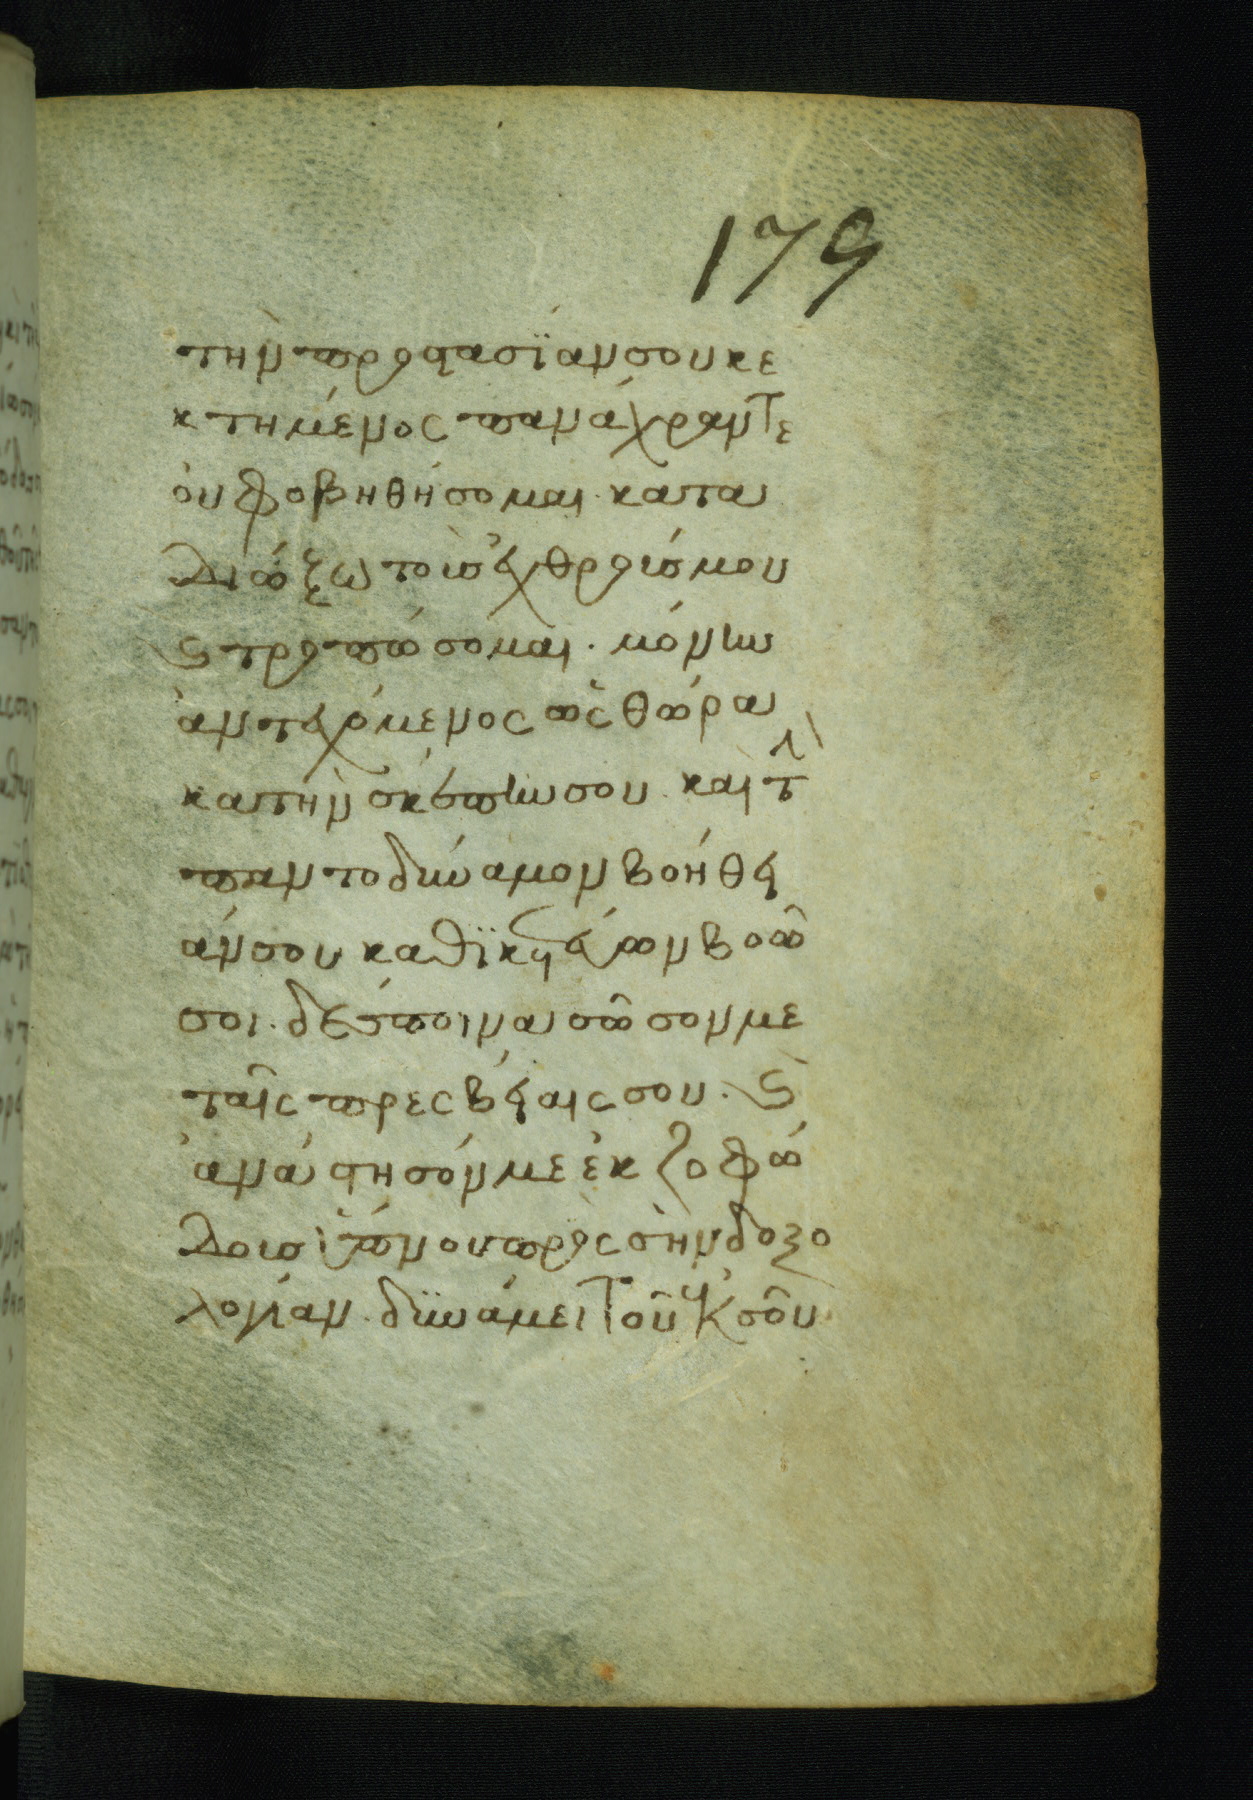 179
τὴν προστασΐαν σου κε
κτημένος πανάχραντε
οὐ φοβηθήσομαι· κατα
διώξω τοὺς ἐχθρούς μου
ϛ τροπώσομαι· μόνην
ἀμπεχόμενος ὡς θώρα
κα τὴν σκέπην σου· καὶ τὴν
παντοδύναμον βοήθει
άν σου καθϊκετεύων βοῶ
σοι· δέσποινα σῶσον με
ταῖς πρεσβείαις σου· ϛ
ἀνάστησόν με ἐκ ζοφώ
δους ὕπνου πρὸς σὴν δοξο
λογίαν· δυνάμει τοῦ ἐκ σοῦ